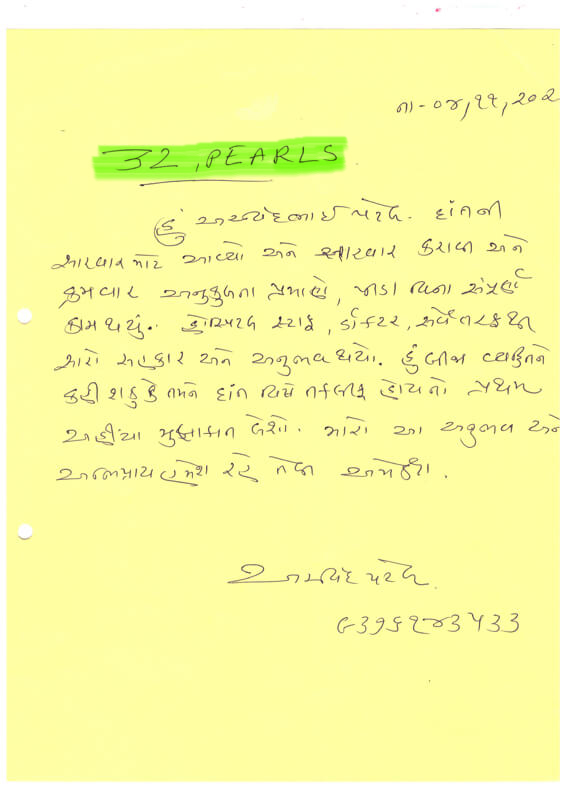 તા-૦૪,૧૧,૨૦૨
32, PEARLS.
હું અરવિંદભાઈ પટેલ. દાંતની
સારવાર માટે આવ્યો અને સારવાર કરાવી અને
ક્રમવાર અનુકુળતા પ્રમાણે, પીડા વિના સંપૂર્ણ
કામ થયું. હોસ્પિટલ સ્ટાફ, ડૉક્ટર, સર્વે તરફથી
સારો સહકાર અને અનુભવ થયો. હું બીજી વ્યક્તિને
કહી શકું કે તમને દાંત વિષે તકલીફ હોય તો પ્રથમ
અહીંયા મુલાકાત લેશો. મારો આ અનુભવ અને
અભિપ્રાય હંમેશ રહે તેવી
અરવિંદ પટેલ.